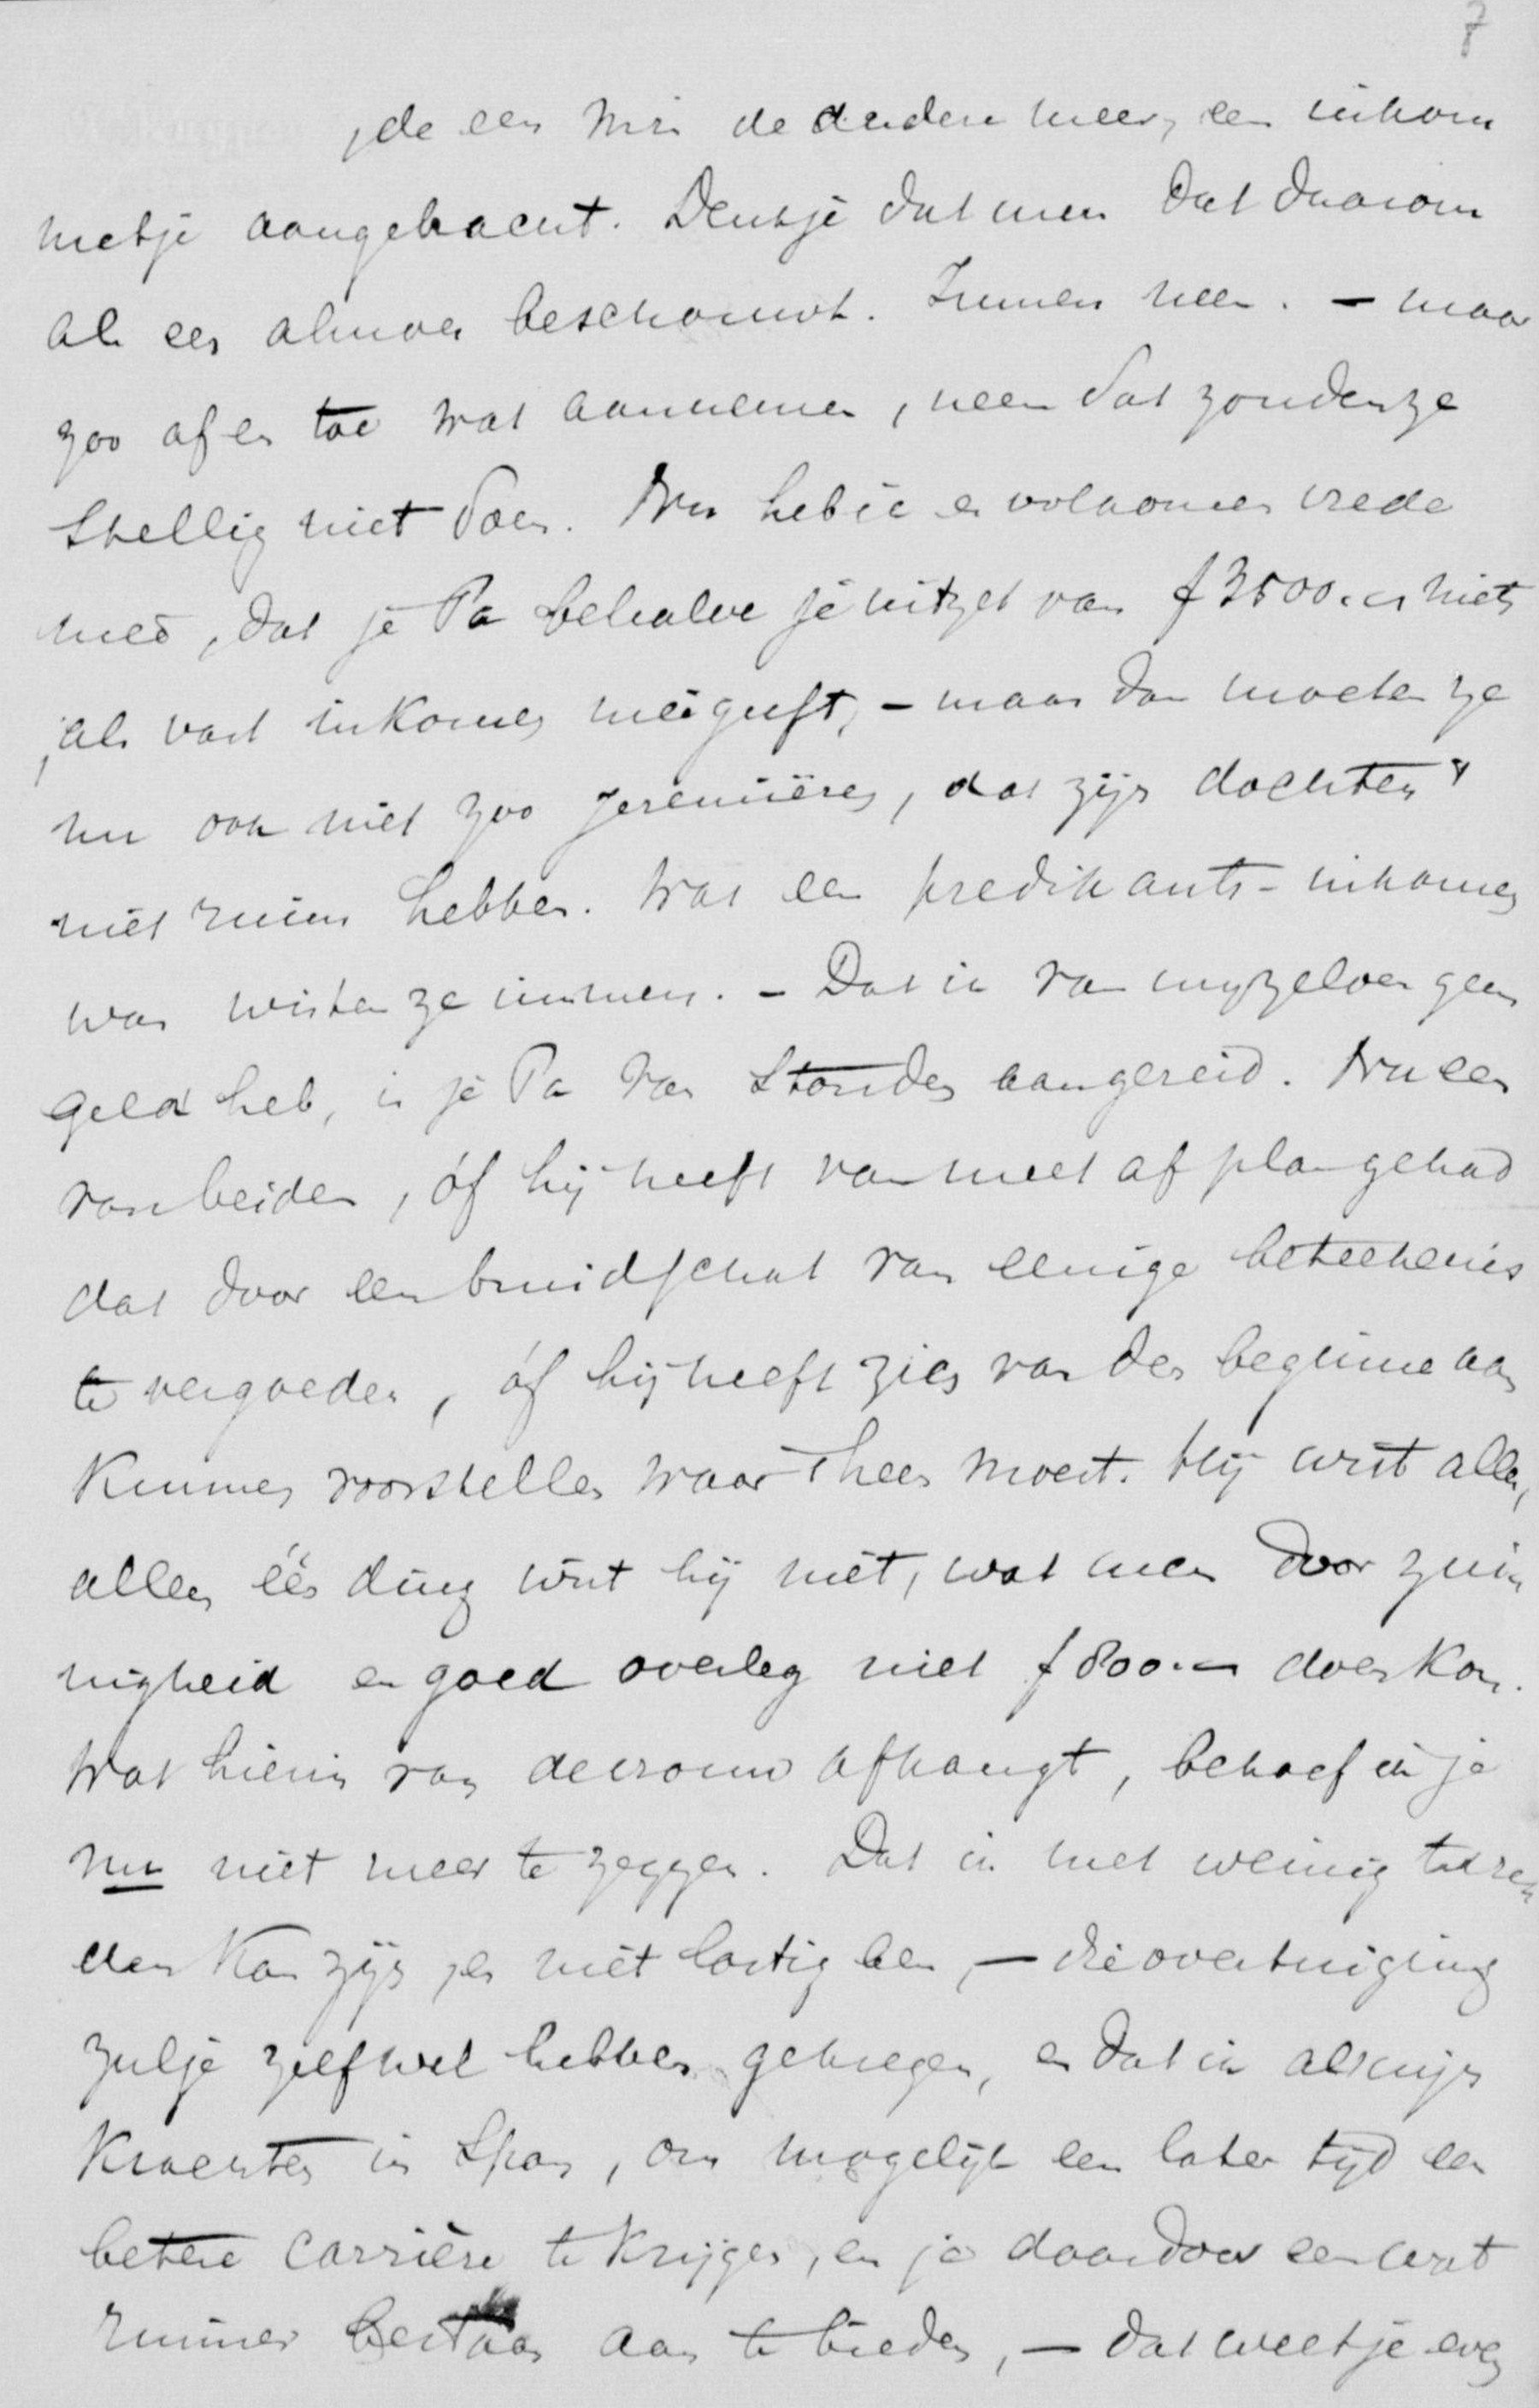 7
, de een min de andere meer, een inkom
metje aangebracht. Denk je dat men dat daarom
als een aalmoes beschouwt. Immers neen. – maar
zoo af en toe wat aannemen, neen dat zouden ze
stellig niet doen. Nu heb ik er volkomen vrede
meê, dat je Pa behalve je uitzet van f 3500.– niets
als vast inkomen meêgeeft, – maar dan moeten ze
nu ook niet zoo jeremiëren, dat zijn dochters
niet ruim hebben. Wat een predikants-inkomen
was wisten ze immers. – Dat ik van mijzelven geen
geld heb, is je Pa van stonden aangezeid. Nu een
van beiden, óf hij heeft van meet af plan gehad
dat door een bruidschat van eenige beteekenis
te vergoeden, óf hij heeft zich van den beginne aan
kunnen voorstellen waar 't heen moest. Hij wist alles,
alleen één ding wist hij niet, wat men door zui
nigheid en goed overleg met f 800.– doen kon.
Wat hierin van de vrouw afhangt, behoef ik je
nu niet meer te zeggen. Dat ik met weinig tevre
den kan zijn, en niet lastig ben, – die overtuiging
zul je zelf wel hebben gekregen, en dat ik al mijn
krachten in span, om mogelijk een later tijd een
betere carrière te krijgen, en je daardoor een wat
ruimer bestaan aan te bieden, – dat weet je even